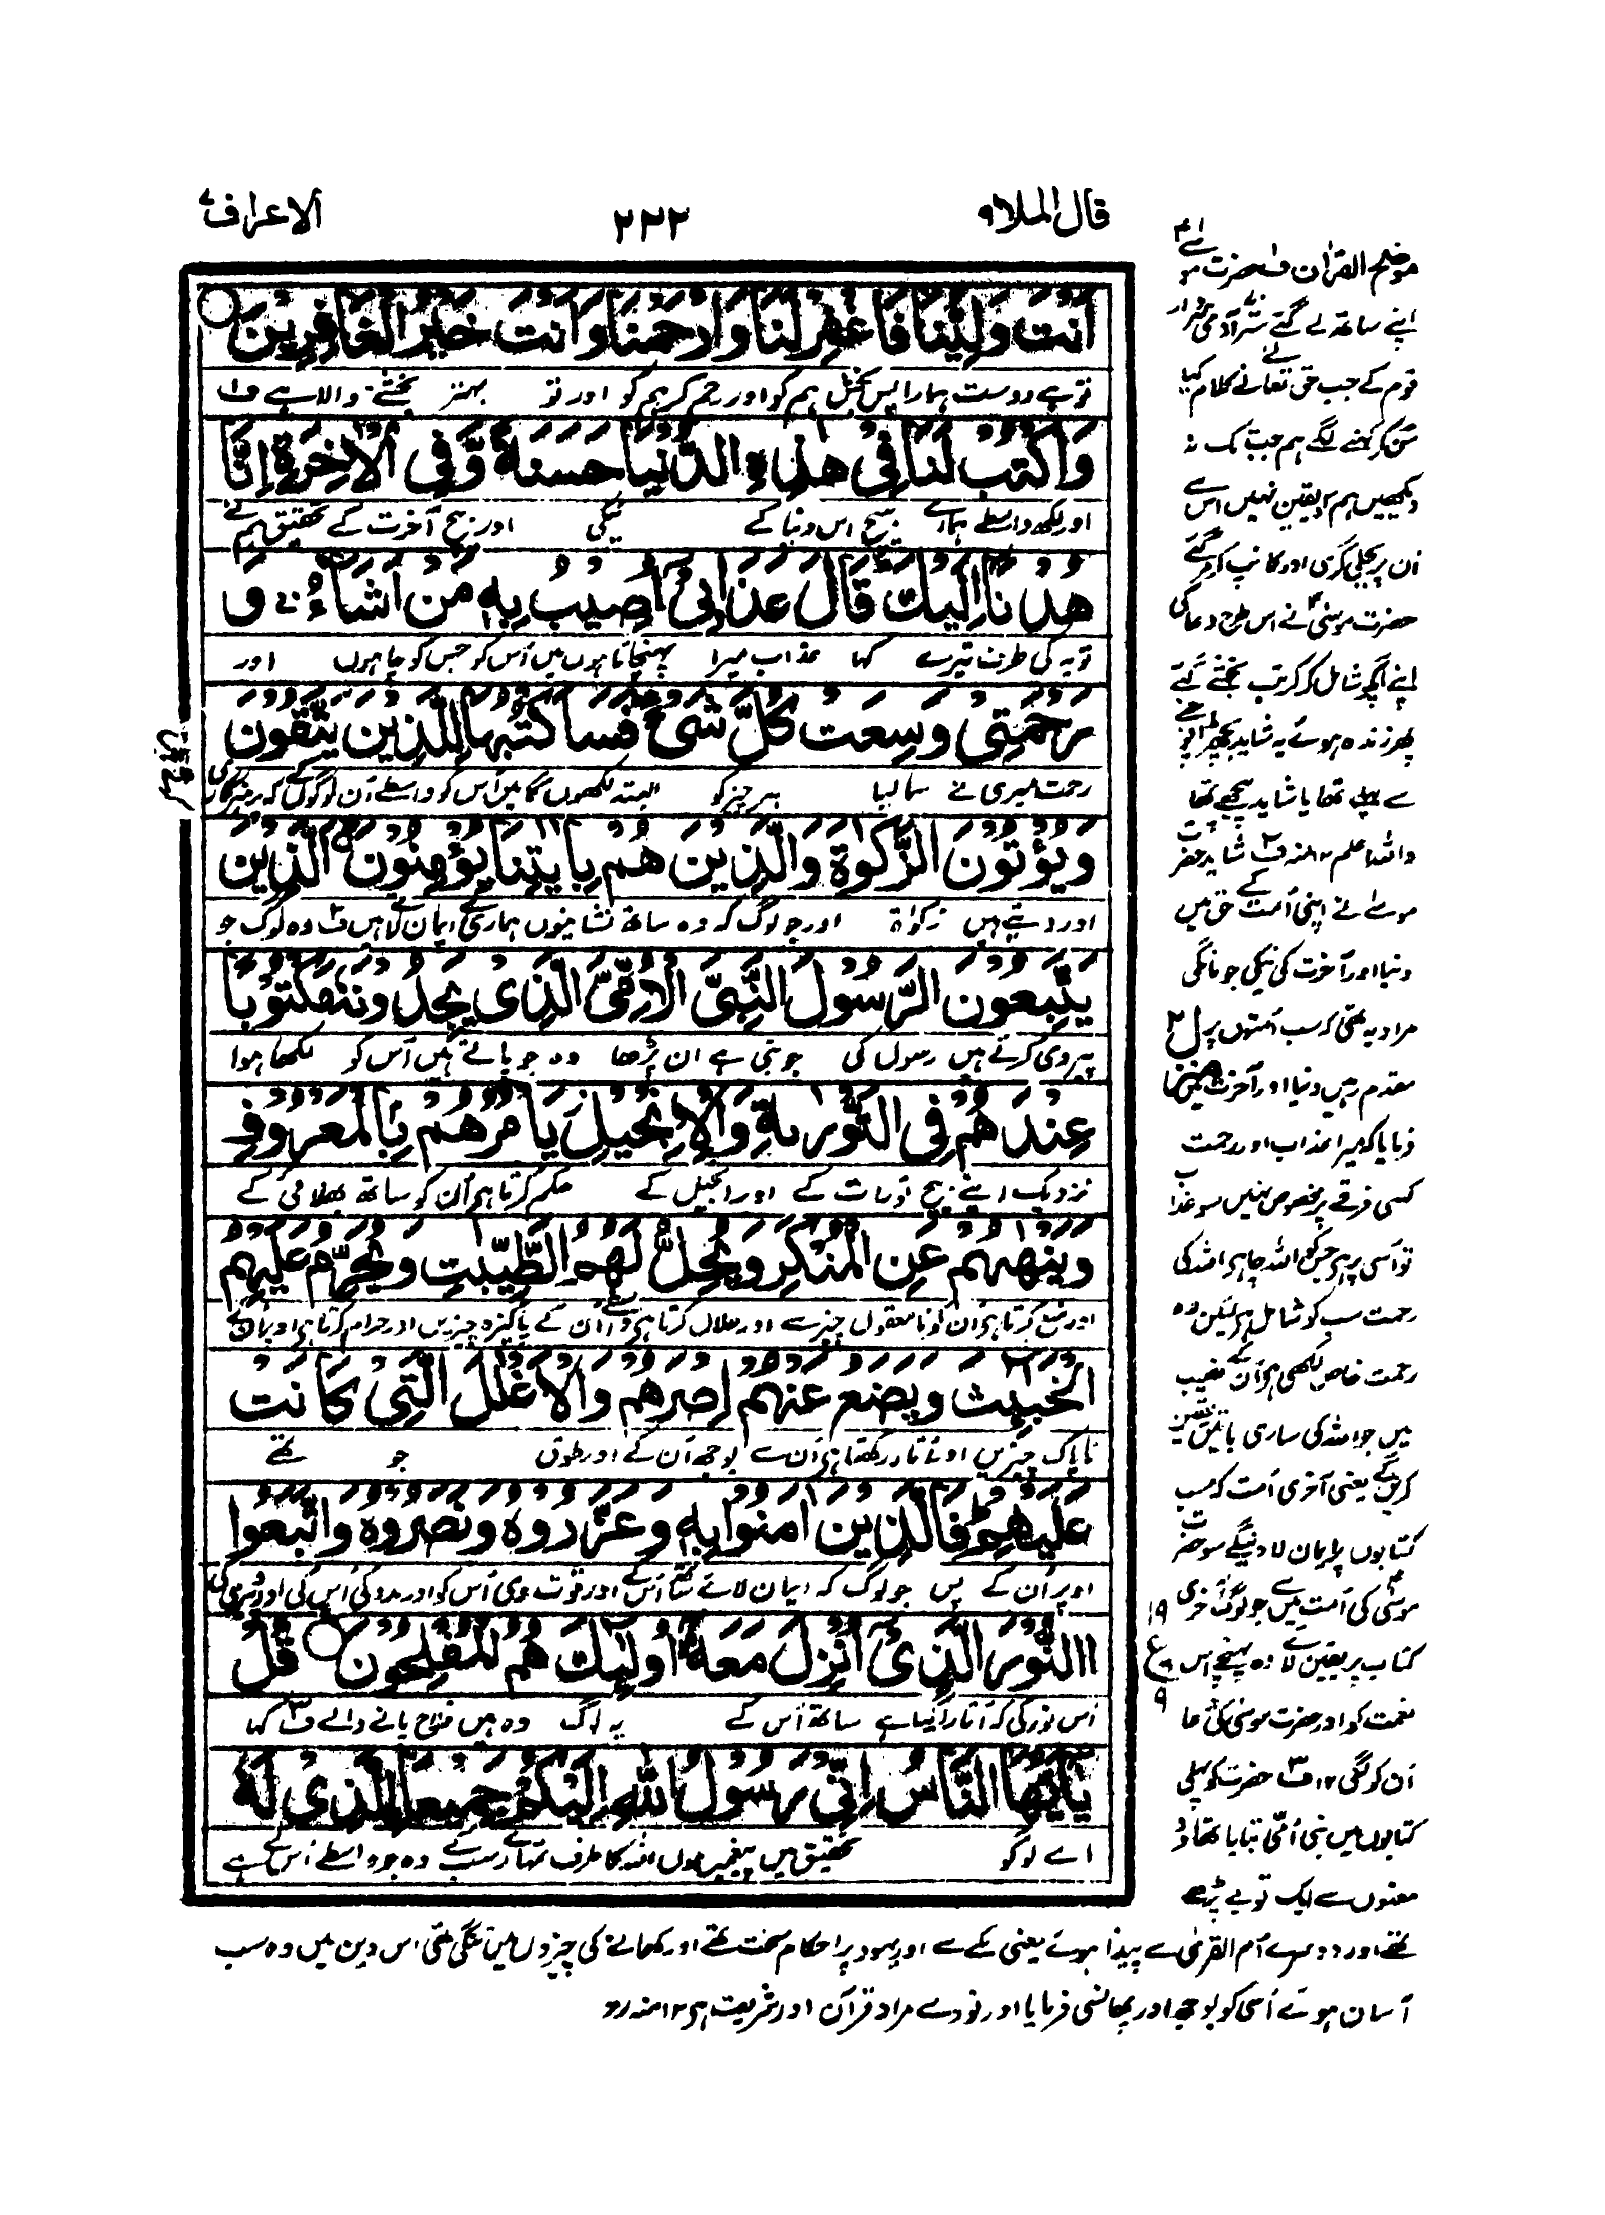 قال الملا ۹
۲۲۲
الاعراف ۷
اَنْتَ وَلِيُّنَا فَاغْفِرْ لَنَا وَارْحَمْنَا وَاَنْتَ خَيْرُ الْغَافِرِيْنَ
تو ہے دوست ہمارا پس بخش ہم کو اور رحم کر ہم کو اور تو بہتر بخشنے والا ہے ف۱
وَاكْتُبْ لَنَا فِيْ هٰذِهِ الدُّنْيَا حَسَنَةً وَّفِي الْاٰخِرَةِ اِنَّا
اور لکھ واسطے ہمارے بیچ اس دنیا کے نیکی اور بیچ آخرت کے تحقیق ہم نے
هُدْنَا اِلَيْكَ قَالَ عَذَابِيْٓ اُصِيْبُ بِهٖ مَنْ اَشَآءُ وَ
توبہ کی طرف تیرے کہا عذاب میرا پہنچاتا ہوں میں اُس کو جس کو چاہوں اور
رَحْمَتِيْ وَسِعَتْ كُلَّ شَيْءٍ فَسَاَكْتُبُهَا لِلَّذِيْنَ يَتَّقُوْنَ
رحمت میری نے سما لیا ہر چیز کو البتہ لکھوں گا میں اُس کو واسطے اُن لوگوں کے کہ پرہیزگاری
وَيُؤْتُوْنَ الزَّكٰوةَ وَالَّذِيْنَ هُمْ بِاٰيٰتِنَا يُؤْمِنُوْنَ اَلَّذِيْنَ
اور دیتے ہیں زکوٰۃ اور جو لوگ کہ وہ ساتھ نشانیوں ہماری کے ایمان لاتے ہیں ف۲ وہ لوگ جو
يَتَّبِعُوْنَ الرَّسُوْلَ النَّبِيَّ الْاُمِّيَّ الَّذِيْ يَجِدُوْنَهٗ مَكْتُوْبًا
پیروی کرتے ہیں رسول کی جو نبی ہے ان پڑھا وہ جو پاتے ہیں اُس کو لکھا ہوا
عِنْدَهُمْ فِي التَّوْرٰىةِ وَالْاِنْجِيْلِ يَاْمُرُهُمْ بِالْمَعْرُوْفِ
نزدیک اپنے بیچ تورات کے اور انجیل کے حکم کرتا ہے اُن کو ساتھ بھلائی کے
وَيَنْهٰىهُمْ عَنِ الْمُنْكَرِ وَيُحِلُّ لَهُمُ الطَّيِّبٰتِ وَيُحَرِّمُ عَلَيْهِمُ
اور منع کرتا ہے اُن کو نامعقول چیز سے اور حلال کرتا ہے واسطے اُن کے پاکیزہ چیزیں اور حرام کرتا ہے اوپر اُن کے
الْخَبٰٓئِثَ وَيَضَعُ عَنْهُمْ اِصْرَهُمْ وَالْاَغْلٰلَ الَّتِيْ كَانَتْ
ناپاک چیزیں اور اتار رکھتا ہے اُن سے بوجھ اُن کے اور طوق جو تھے
عَلَيْهِمْ فَالَّذِيْنَ اٰمَنُوْا بِهٖ وَعَزَّرُوْهُ وَنَصَرُوْهُ وَاتَّبَعُوا
اوپر اُن کے پس جو لوگ کہ ایمان لائے ساتھ اُس کے اور قوت دی اُس کو اور مدد کی اُس کی اور پیروی کی
النُّوْرَ الَّذِيْٓ اُنْزِلَ مَعَهٗٓ اُولٰٓئِكَ هُمُ الْمُفْلِحُوْنَ قُلْ
اُس نور کی کہ اتارا گیا ہے ساتھ اُس کے یہ لوگ وہ ہیں فلاح پانے والے ف۳ کہا
يٰٓاَيُّهَا النَّاسُ اِنِّيْ رَسُوْلُ اللّٰهِ اِلَيْكُمْ جَمِيْعًا الَّذِيْ لَهٗ
اے لوگو تحقیق میں پیغمبر ہوں اللہ کا طرف تمہارے سب کے وہ جو واسطے اُس کے ہے
موضح القرآن ف۱ حضرت موسےٰ
اپنے ساتھ لے گئے ستر آدمی سردار
قوم کے جب حق تعالےٰ نے کلام کیا
سُن کر کہنے لگے ہم جب تک نہ
دیکھیں ہم کو یقین نہیں اس سے
اُن پر بجلی گری اور کانپ کر مر گئے
حضرت موسیٰؑ نے اس طرح دعا کی
اپنے آپ کو شامل کر کر تب بخشے گئے
پھر زندہ ہوئے یہ شاید بچھڑا پوجنے
سے پہلے تھا یا شاید پیچھے تھا
واللہ اعلم ۱۲ منہ ف۲ شاید حضرت
موسےٰ نے اپنی اُمت کے حق میں
دنیا اور آخرت کی نیکی جو مانگی
مراد یہ تھی کہ سب اُمتوں پر
مقدم رہیں دنیا اور آخرت میں
فرمایا کہ میرا عذاب اور رحمت
کسی فرقے پر مخصوص نہیں سو عذاب
تو اُسی پر ہے جس کو اللہ چاہے اور اللہ کی
رحمت سب کو شامل ہے لیکن وہ
رحمت خاص لکھی ہے اُن کے نصیب
میں جو اللہ کی ساری باتیں یقین
کریں گے یعنی آخری اُمت کہ سب
کتابوں پر ایمان لاوینگے سو حضرت
موسیٰؑ کی اُمت میں سے جو لوگ آخری
کتاب پر یقین لائے وہ پہنچے اس
نعمت کو اور حضرت موسیٰ کی دعا
اُن کو لگی ۱۲ ف۳ حضرت کو پہلی
کتابوں میں نبی اُمّی بتایا تھا دو
معنوں سے ایک تو بے پڑھے
۱۹
ع
۹
تھے اور دوسرے اُم القریٰ سے پیدا ہوئے یعنی مکے سے اور یہود پر احکام سخت تھے اور کھانے کی چیزوں میں تنگی تھی اس دین میں وہ سب
آسان ہوئے اُسی کو بوجھ اور پھانسی فرمایا اور نور سے مراد قرآن اور شریعت ہے ۱۲ منہ رح